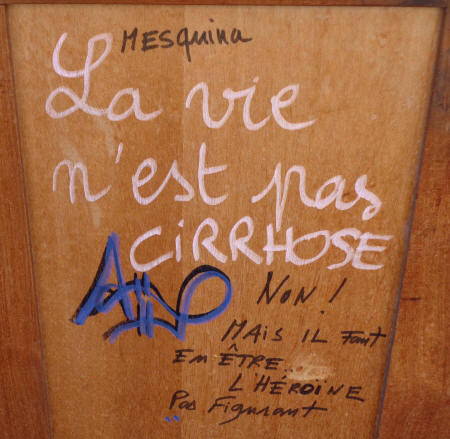 MESquina
La vie
n'est pas
CiRRHOSE
NON !
MAiS iL Faut
Em ÊTRE...
L'HÉROÏNE
Pas Figurant